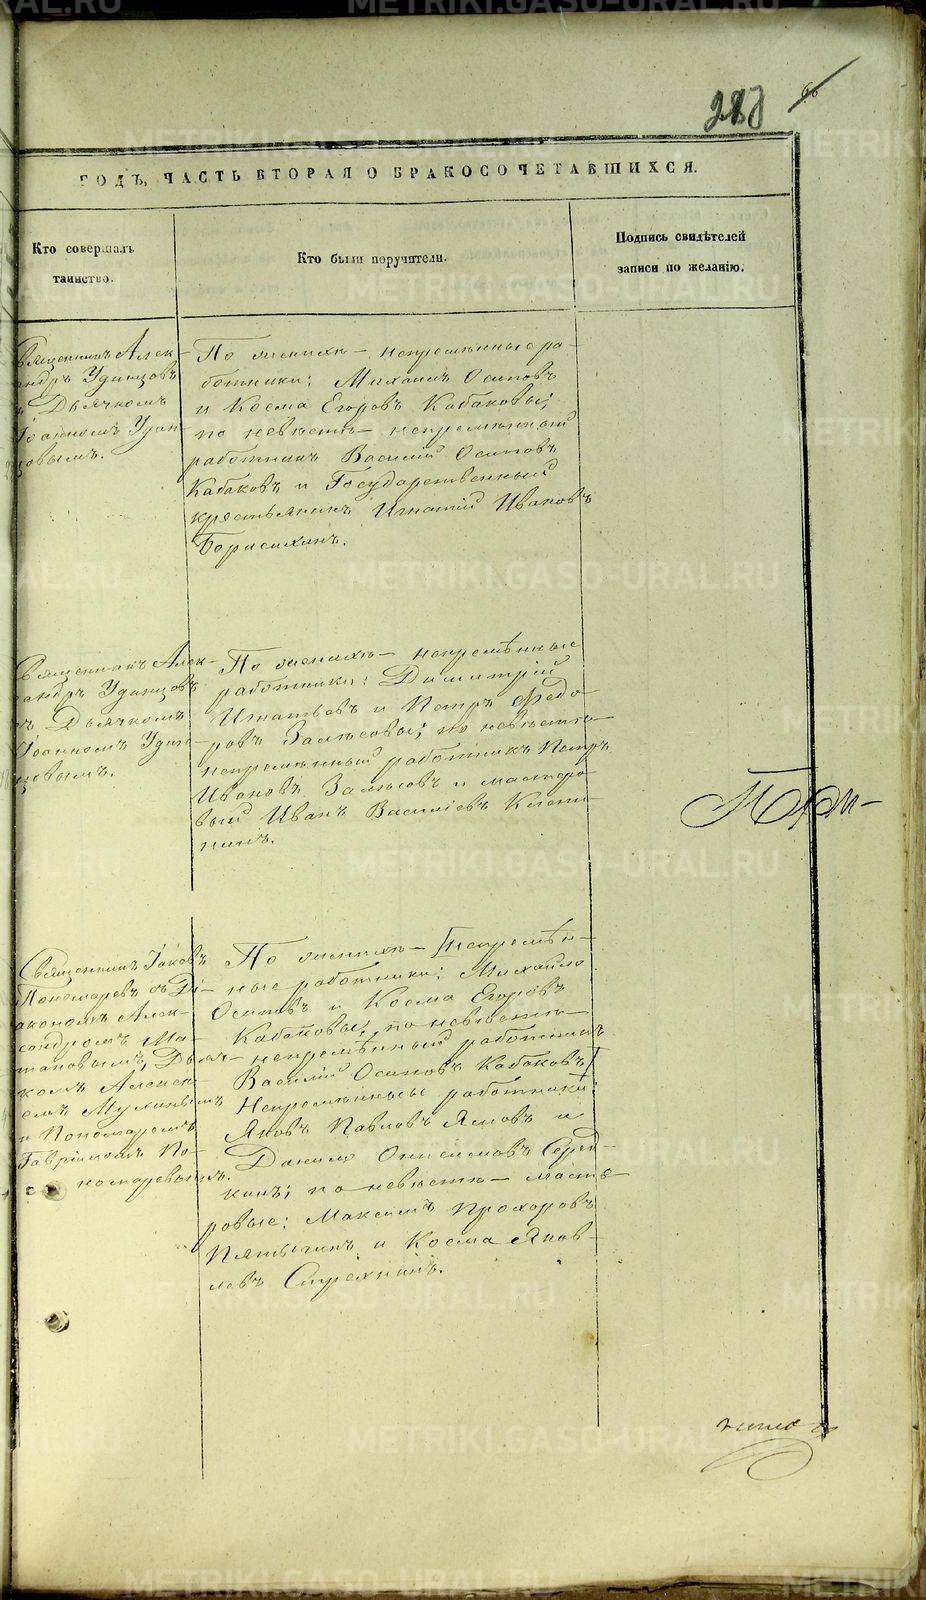 283 66
ГОДЪ, ЧАСТЬ ВТОРАЯ О БРАКОСОЧЕТАВШИХСЯ.
Кто совершалъ
таинство.
Кто были поручители.
Подпись свидѣтелей
записи по желанію.
Священникъ Алек-
сандръ Удинцовъ
съ Дьячкомъ
Іоанномъ Удин-
цовымъ.
По женихѣ – непремѣнные ра-
ботники: Михаилъ Осиповъ
и Косма Егоровъ Кабаковы;
по невѣстѣ – непремѣнный
работникъ Василій Осиповъ
Кабаковъ и Государственный
крестьянинъ Игнатій Ивановъ
Борисихинъ.
Священникъ Алек-
сандръ Удинцовъ
съ Дьячкомъ
Іоанномъ Удин-
цовымъ.
По женихѣ – непремѣнные
работники: Димитрій
Игнатьевъ и Петръ Федо-
ровъ Залѣсовы; по невѣстѣ –
непремѣнный работникъ Петръ
Ивановъ Залѣсовъ и мастеро-
вый Иванъ Василіевъ
Священникъ Іаковъ
Пономаревъ съ Ді-
акономъ Алек-
сандромъ Ма-
Дьяч-
комъ Алексѣ-
емъ Мухинымъ
и Пономаремъ
Гавріиломъ По-
номаревымъ.
По женихѣ – [непремѣн-
ные работники: Михайло
Осиповъ и Косма Егоровъ
Кабаковы; по невѣстѣ –
непремѣнный работникъ
Василій Осиповъ Кабаковъ]
Непремѣнные работники:
Яковъ Павловъ и
Данило Онисимовъ
по невѣстѣ – масте-
ровые: Максимъ Прохоровъ
Пятыгинъ и Косма Яков-
левъ